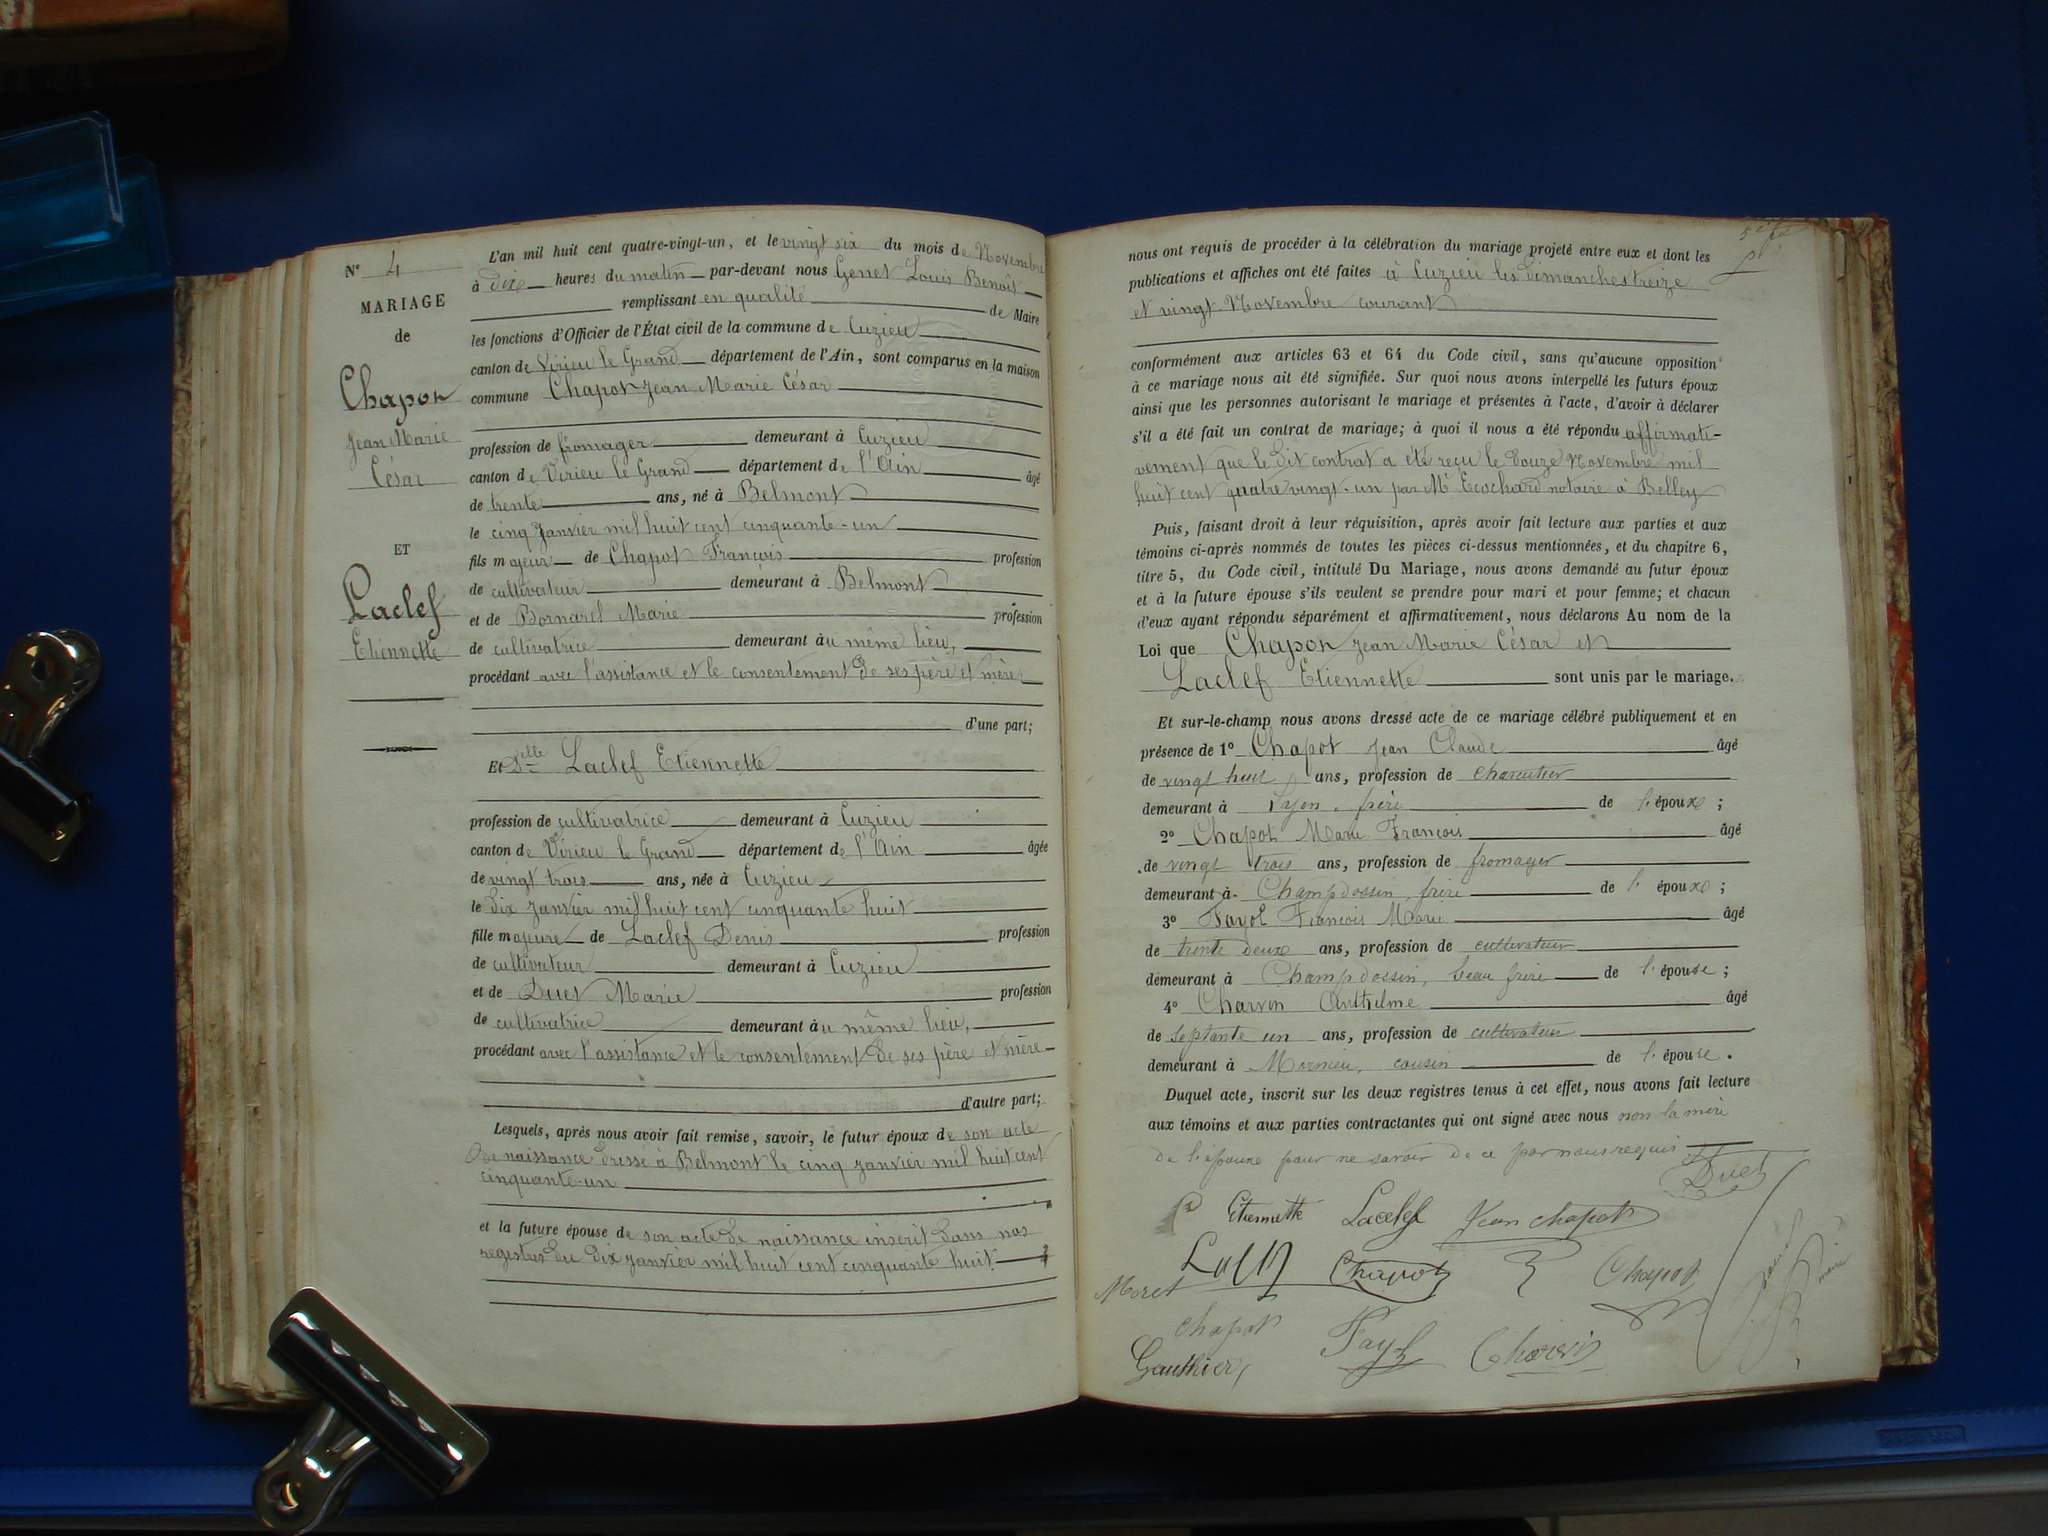 N° 4
MARIAGE
de
Chapot
Jean Marie
César
ET
Laclef
Etiennette
L'an mil huit cent quatre-vingt-un, et le vingt six du mois de Novembre
à dix heures du matin par-devant nous Genet Louis Benoît
remplissant en qualité de Maire
les fonctions d'Officier de l'État civil de la commune de Cuzieu
canton de Virieu le Grand département de l'Ain, sont comparus en la maison
commune Chapot Jean Marie César
profession de fromager demeurant à Cuzieu
canton de Virieu le Grand département de l'Ain âgé
de trente ans, né à Belmont
le cinq Janvier mil huit cent cinquante-un
fils majeur de Chapot François profession
de cultivateur demeurant à Belmont
et de Bornarel Marie profession
de cultivatrice demeurant àu même lieu,
procédant avec l'assistance et le consentement de ses père et mère
d'une part;
Et Delle Laclef Etiennette
profession de cultivatrice demeurant à Cuzieu
canton de Virieu le Grand département de l'Ain âgée
de vingt trois ans, née à Cuzieu
le dix Janvier mil huit cent cinquante huit
fille majeure de Laclef Denis profession
de cultivateur demeurant à Cuzieu
et de Duet Marie profession
de cultivatrice demeurant àu même lieu,
procédant avec l'assistance et le consentement de ses père et mère
d'autre part;
Lesquels, après nous avoir fait remise, savoir, le futur époux de son acte
de naissance dressé à Belmont le cinq Janvier mil huit cent
cinquante-un
et la future épouse de son acte de naissance inscrit dans nos
registres du dix Janvier mil huit cent cinquante huit
nous ont requis de procéder à la célébration du mariage projeté entre eux et dont les
publications et affiches ont été faites à Cuzieu les dimanches treize
et vingt Novembre courant
conformément aux articles 63 et 64 du Code civil, sans qu'aucune opposition
à ce mariage nous ait été signifiée. Sur quoi nous avons interpellé les futurs époux
ainsi que les personnes autorisant le mariage et présentes à l'acte, d'avoir à déclarer
s'il a été fait un contrat de mariage; à quoi il nous a été répondu affirmati-
vement que le dit contrat a été reçu le douze Novembre mil
huit cent quatre vingt-un par Me Ecochard notaire à Belley
Puis, faisant droit à leur réquisition, après avoir fait lecture aux parties et aux
témoins ci-après nommés de toutes les pièces ci-dessus mentionnées, et du chapitre 6,
titre 5, du Code civil, intitulé Du Mariage, nous avons demandé au futur époux
et à la future épouse s'ils veulent se prendre pour mari et pour femme; et chacun
d'eux ayant répondu séparément et affirmativement, nous déclarons Au nom de la
Loi que Chapot Jean Marie César et
Laclef Etiennette sont unis par le mariage.
Et sur-le-champ nous avons dressé acte de ce mariage célébré publiquement et en
présence de 1° Chapot Jean Claude âgé
de vingt huit ans, profession de
demeurant à Lyon, frère de l'époux;
2° Chapot Marie François âgé
de vingt trois ans, profession de fromager
demeurant à Champdossin, frère de l'époux;
3° Fayol François Marie âgé
de trente deux ans, profession de cultivateur
demeurant à Champdossin, beau frère de l'épouse;
4° Charvin Anthelme âgé
de septante un ans, profession de cultivateur
demeurant à Mornieu, cousin de l'épouse.
Duquel acte, inscrit sur les deux registres tenus à cet effet, nous avons fait lecture
aux témoins et aux parties contractantes qui ont signé avec nous non la mère
de l'épouse pour ne savoir de ce par nous requis
Duet
Etiennette Laclef Jean chapot
Chapot Chapot
Moret
chapot Fayol Charvin
Gauthier